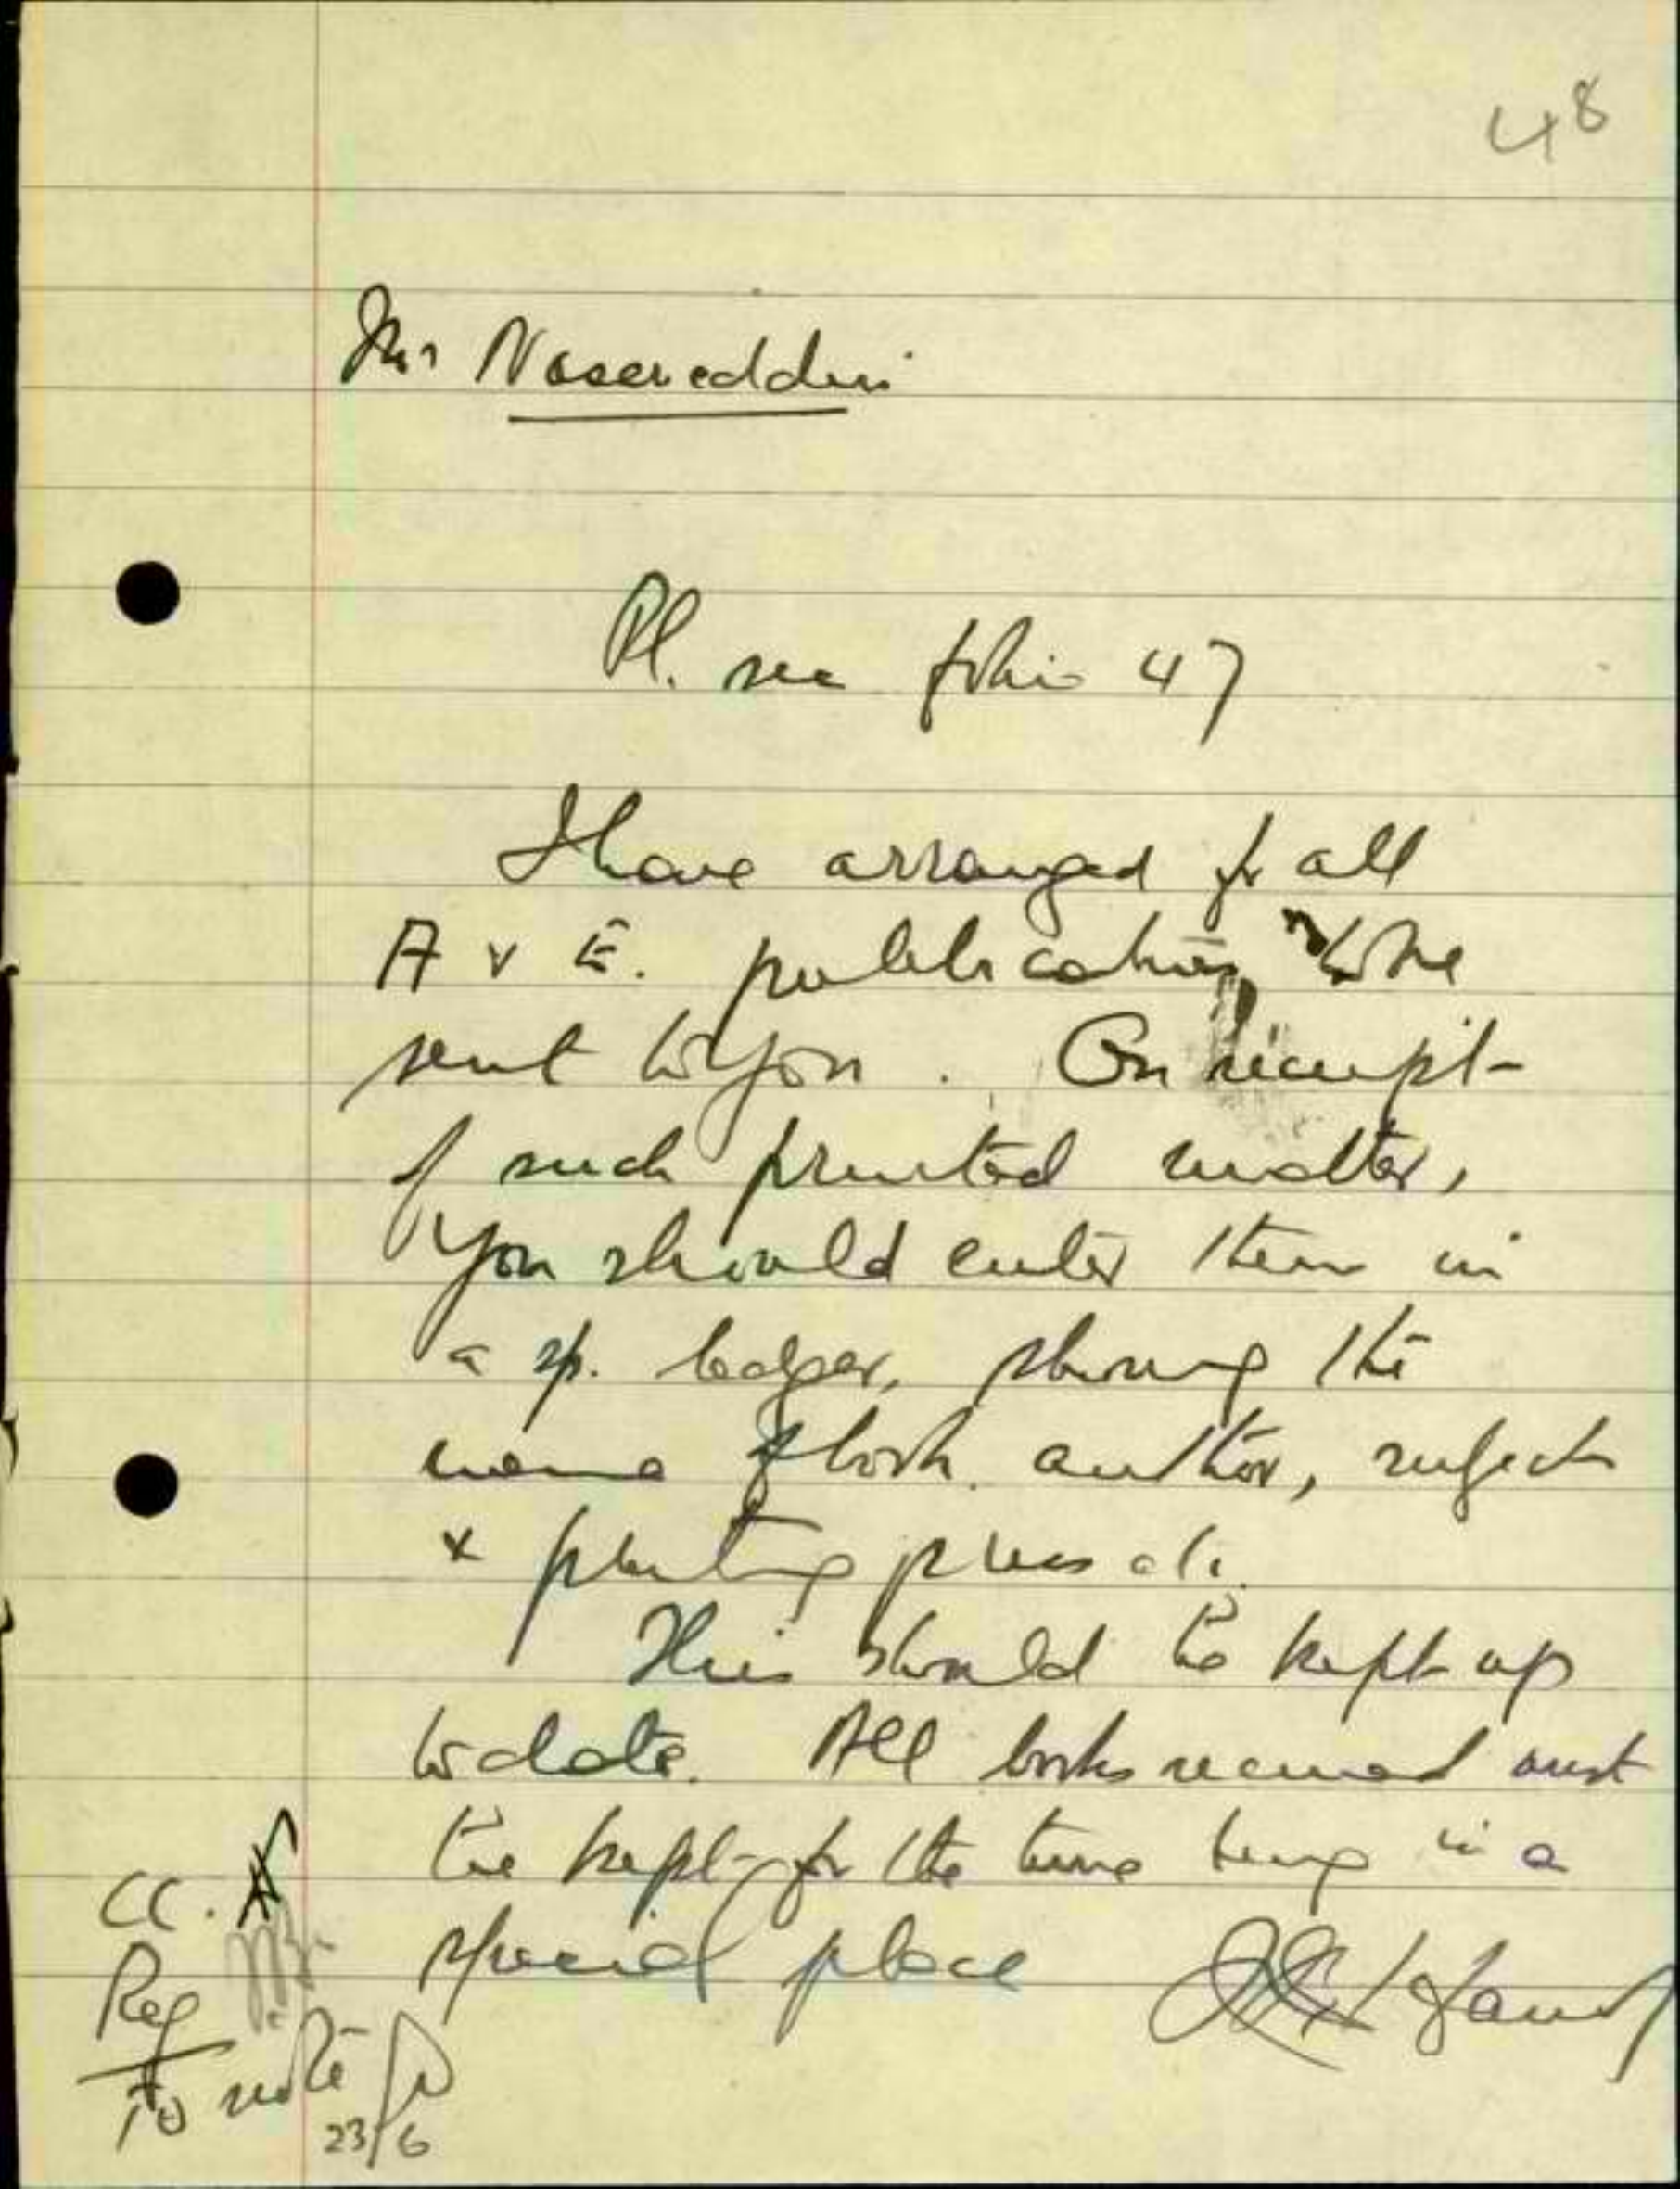 48
Mr Nasereddin
Pl. see folio 47
I have arranged for all
A & E. publications to be
sent to you. On receipt
of such printed matter,
you should enter them in
a sp. ledger, showing the
name of book, author, subject
& printing press etc.
This should be kept up
to date. All books received must
be kept for the time being in a
special place
CC.
Reg
to note
23/6